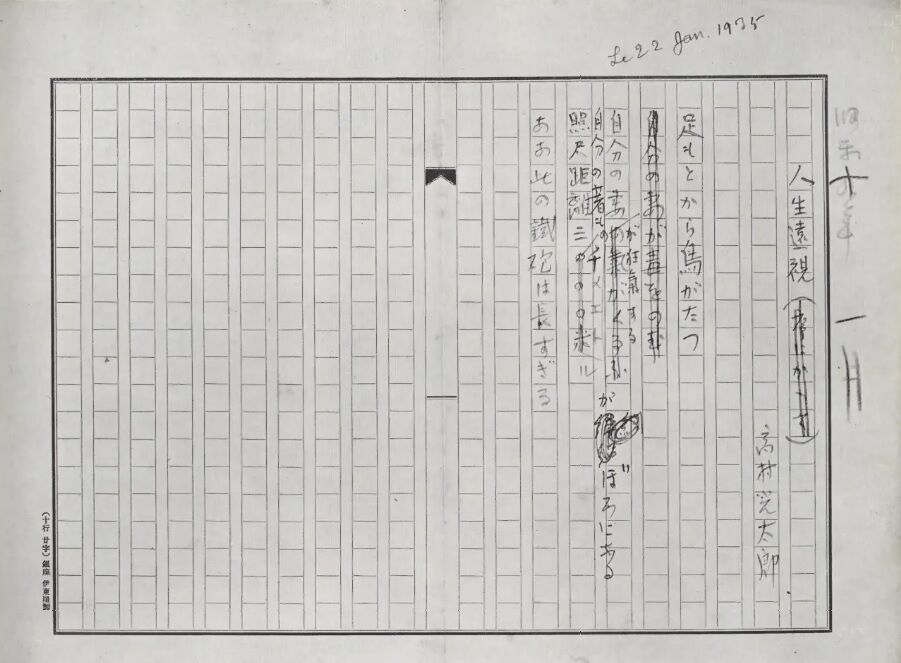 Le 22 Jan. 1935
人生遠視
高村光太郎
足もとから鳥がたつ
自分の妻が毒をのむ
自分の妻が狂気する
自分の著ものがぼろになる
照尺距離三千メートル
ああ此の鐵砲は長すぎる
(十行 廿字) 銀座 伊東屋製